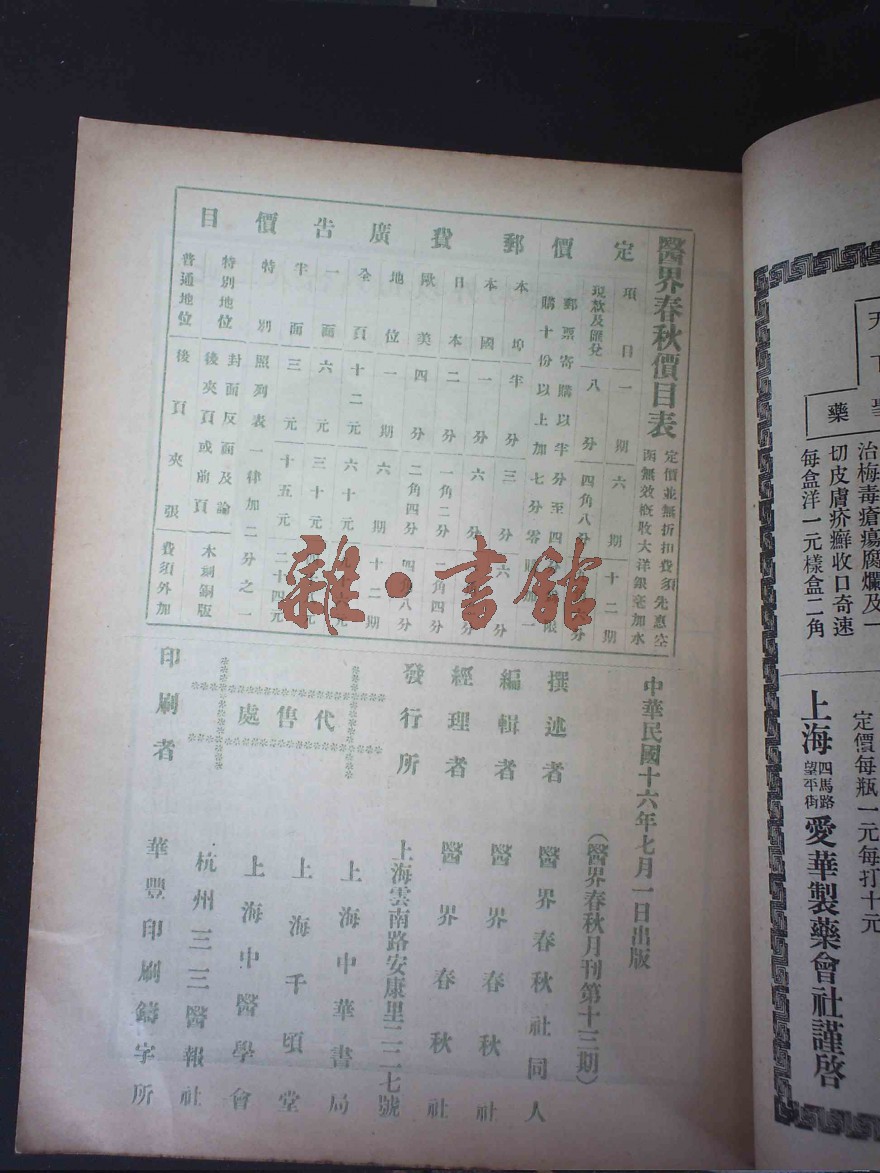 醫界春秋價目表
定價並無折扣費須先惠空
函無效概收大洋銀毫加水
定價
郵費
廣告價目
項目 一期 六期 十二期
現款及匯兌 八分 四角八分
郵票寄購以半分至四
購十份以上加七分零
本埠 半分 三分 六
本國 一分 六分
日本 二分 一角二分 二角四分
歐美 四分 二角四分 四角八分
地位 一期 六期 十二期
全頁 十二元 六十元
一面 六元 三十元
半面 三元 十五元 二十四元
特別 照列表一律加二分之一
特別地位 封面反面及論後夾頁或前頁 木刻銅版
普通地位 後頁夾張 費須外加
雜·書館
中華民國十六年七月一日出版
（醫界春秋月刊第十三期）
撰述者 醫界春秋社同人
編輯者 醫界春秋社
經理者 醫界春秋社
發行所 上海雲南路安康里二二七號
代售處
上海中華書局
上海千頃堂
上海中醫學會
杭州三三醫報社
印刷者 華豐印刷鑄字所
藥
治梅毒瘡瘍腐爛及一
切皮膚疥癬收口奇速
每盒洋一元樣盒二角
定價每瓶一元每打十元
上海四馬路望平街愛華製藥會社謹啓